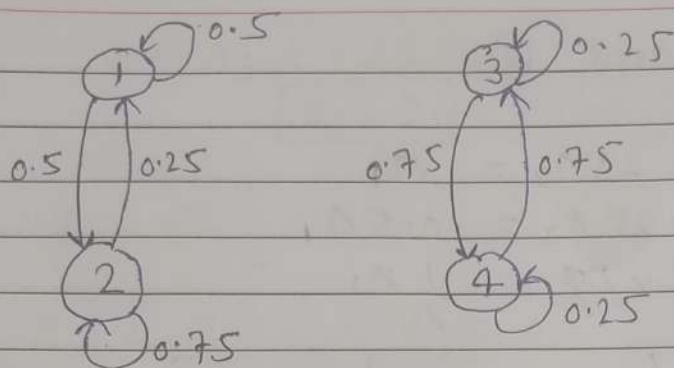 1 0.5 3 0.25
0.5 0.25 0.75 0.75
2 4
0.75 0.25